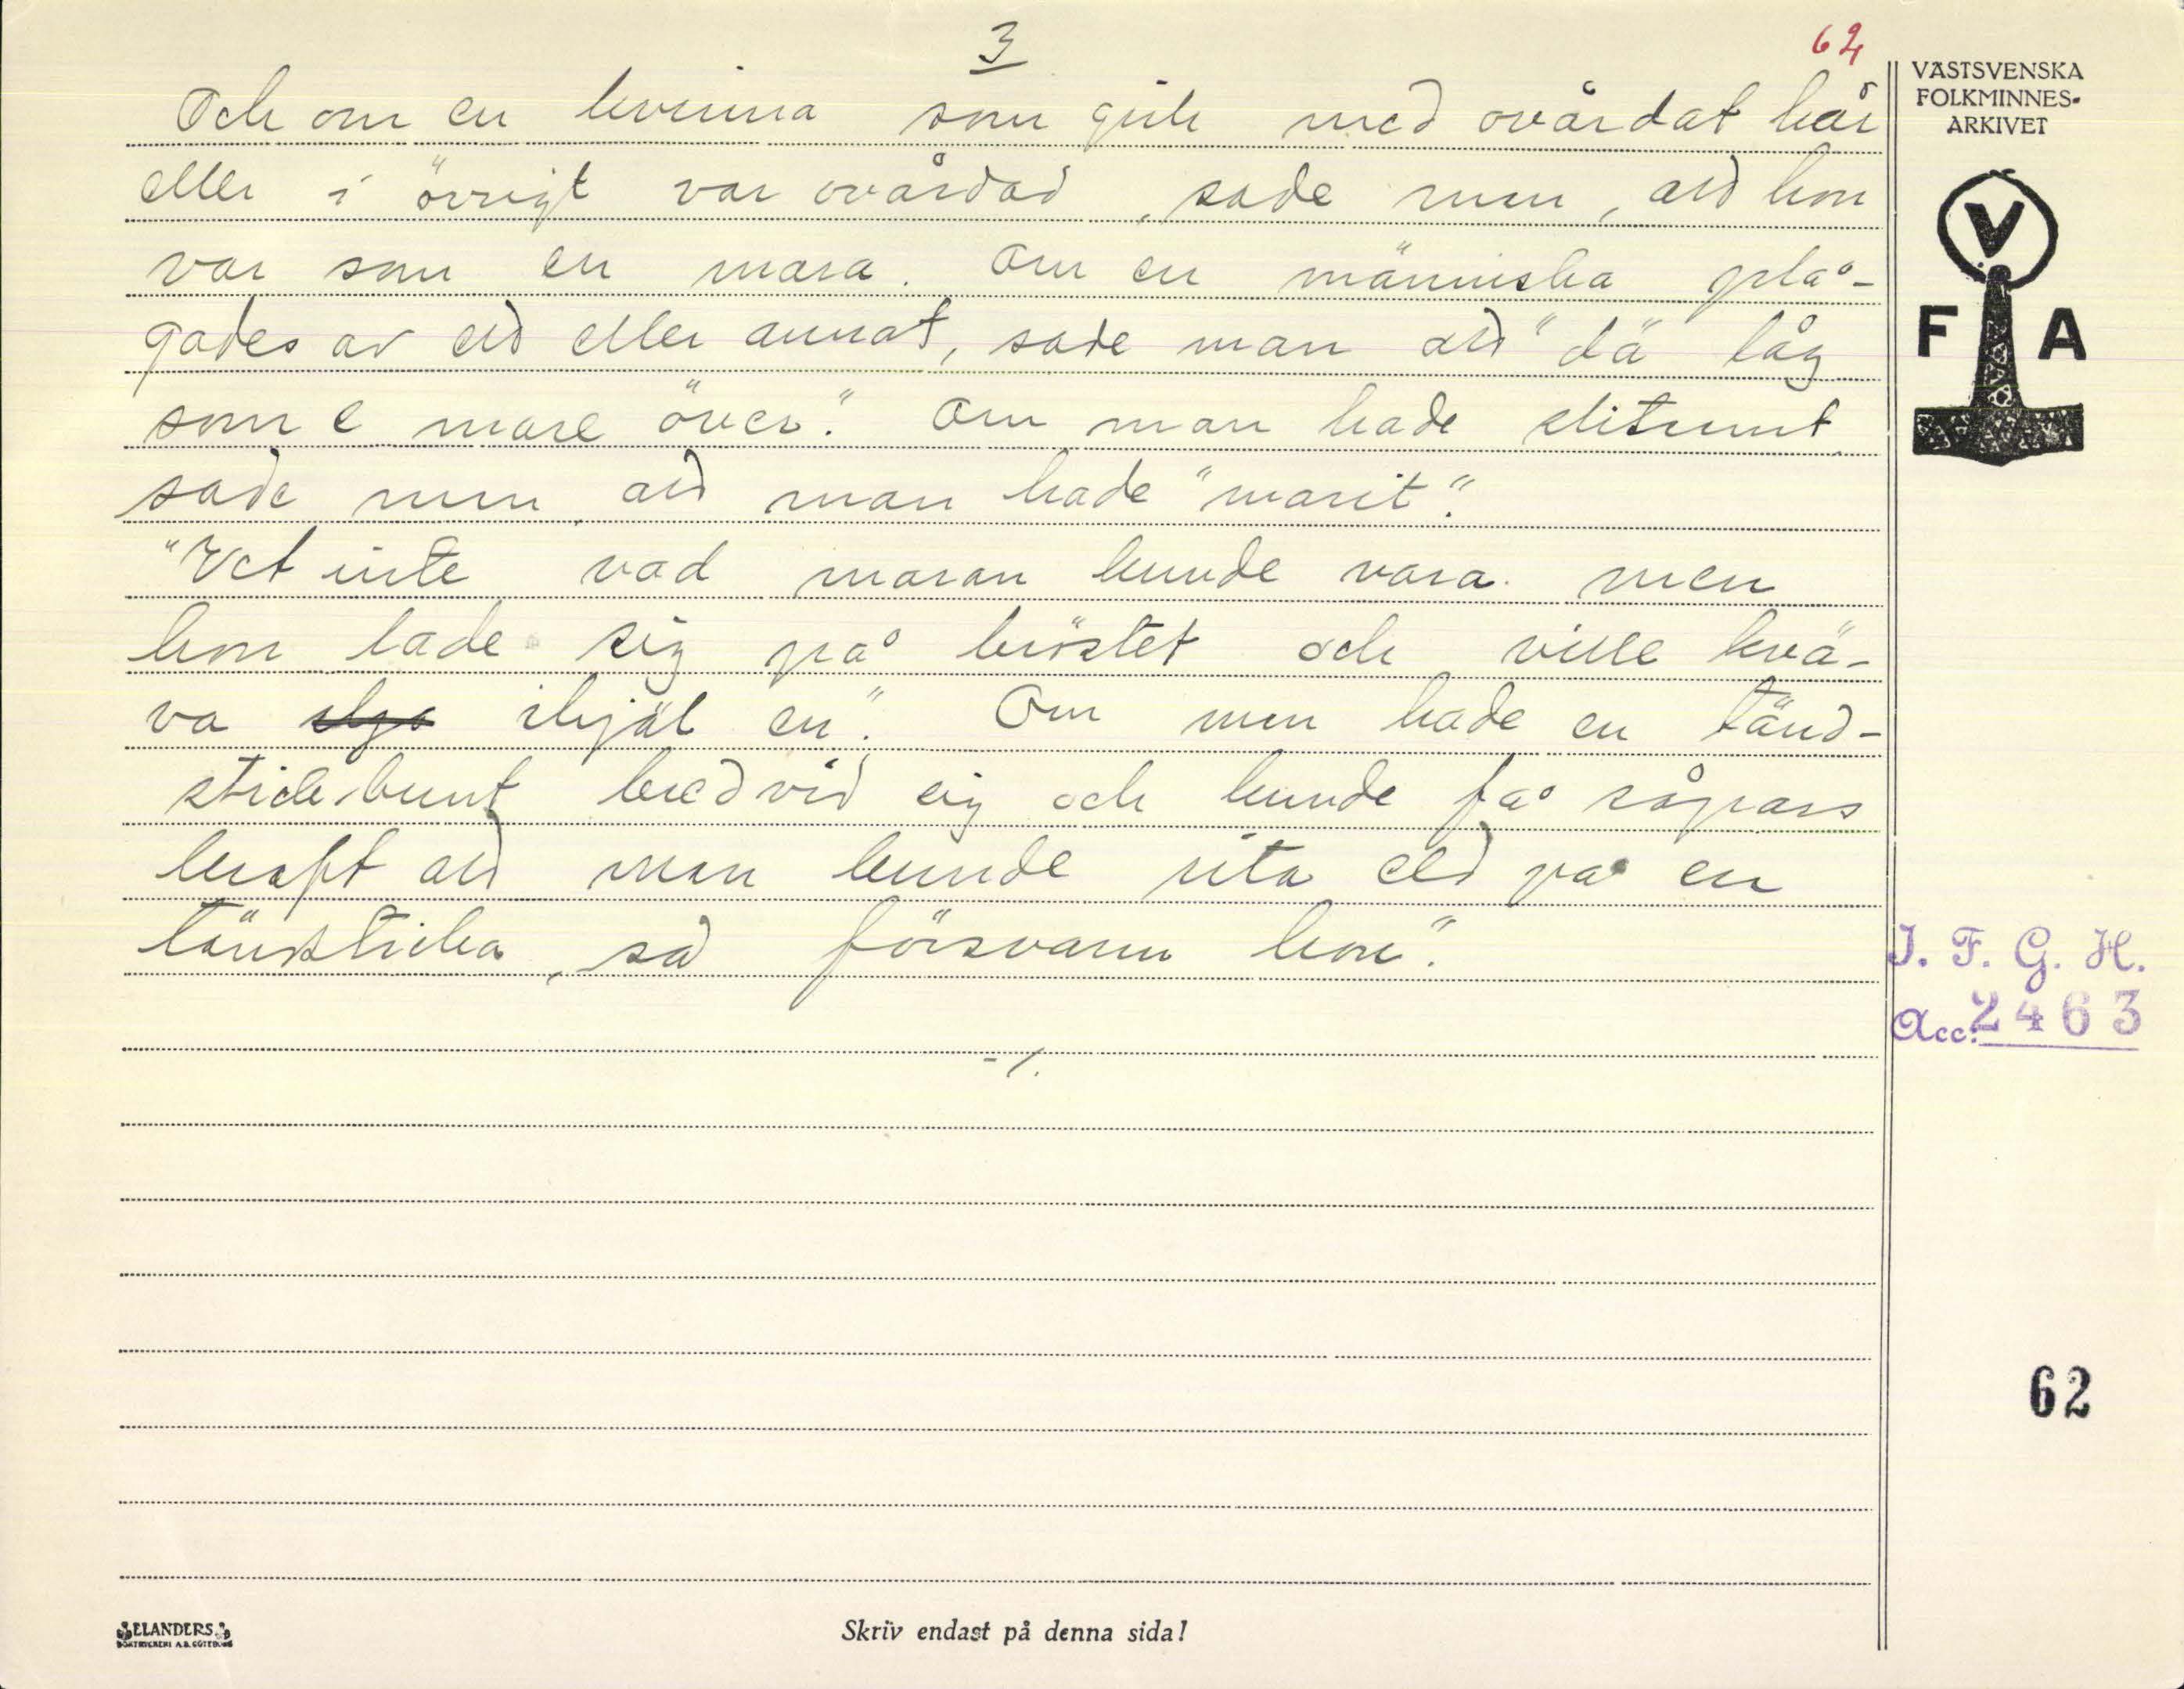 3
62
Och om en kvinna som gick med ovårdat hår
eller i övrigt var ovårdad, sade man, att hon
var som en mara. Om en människa plå-
gades av ett eller annat, sade man att "dä låg
som e mare över". Om man hade slitsamt
sade man att man hade "marit".
"Vet inte vad maran kunde vara men
hon lade sig på bröstet och ville kvä-
va ihjäl en". Om man hade en tänd-
sticksbunt bredvid sig och kunde få såpass
kraft att man kunde rita eld på en
tändsticka, så försvann hon".
-/.
VÄSTSVENSKA
FOLKMINNES-
ARKIVET
V
F A
I. F. G. H.
Acc. 2463
62
ELANDERS
BOKTRYCKERI A.B. GÖTEBORG
Skriv endast på denna sida!